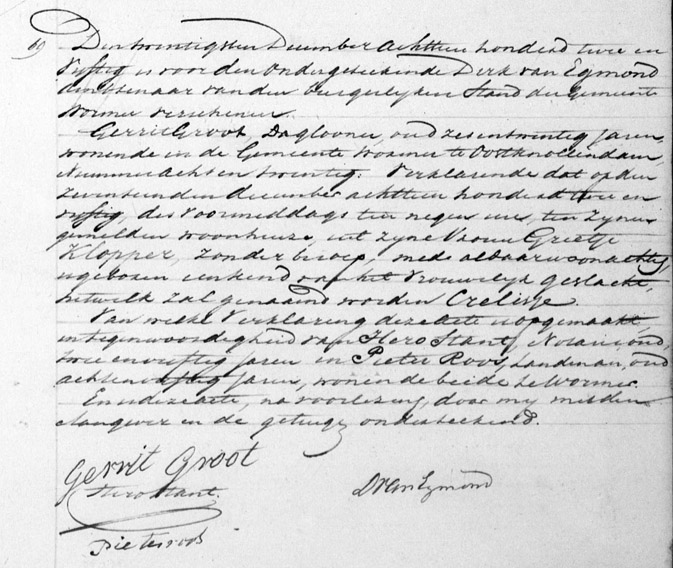 69 Den twintigsten December achttien honderd twee en
vyftig is voor den Ondergeteekende Dirk van Egmond
ambtenaar van den burgerlyken Stand der gemeente
Wormer verschenen
Gerrit Groot, Daglooner, oud zesentwintig jaren,
wonende in de Gemeente Wormer te Oostknollendam,
Nummer achtentwintig. Verklarende dat op den
zeventienden december achttien honderd twee en
vyftig, des voormiddags ten negen ure, ten zynen
gemelden woonhuize, uit zyne Vrouw Greetje
Klopper, zonder beroep, mede aldaar woonachtig,
is geboren een kend van het Vrouwelyk geslacht,
hetwelk zal genaamd worden Crelisje.
Van welke Verklaring deze acte is opgemaakt,
in tegenwoordigheid van Hero Stant, Notaris, oud
twee en vyftig jaren en Pieter Roos, Landman, oud
achtenvyftig jaren, wonende beide te Wormer.
En is deze acte, na voorlezing, door my met den
aangever en de getuigen onderteekend.
Gerrit Groot
Hero Stant.
D van Egmond
Pieter roos